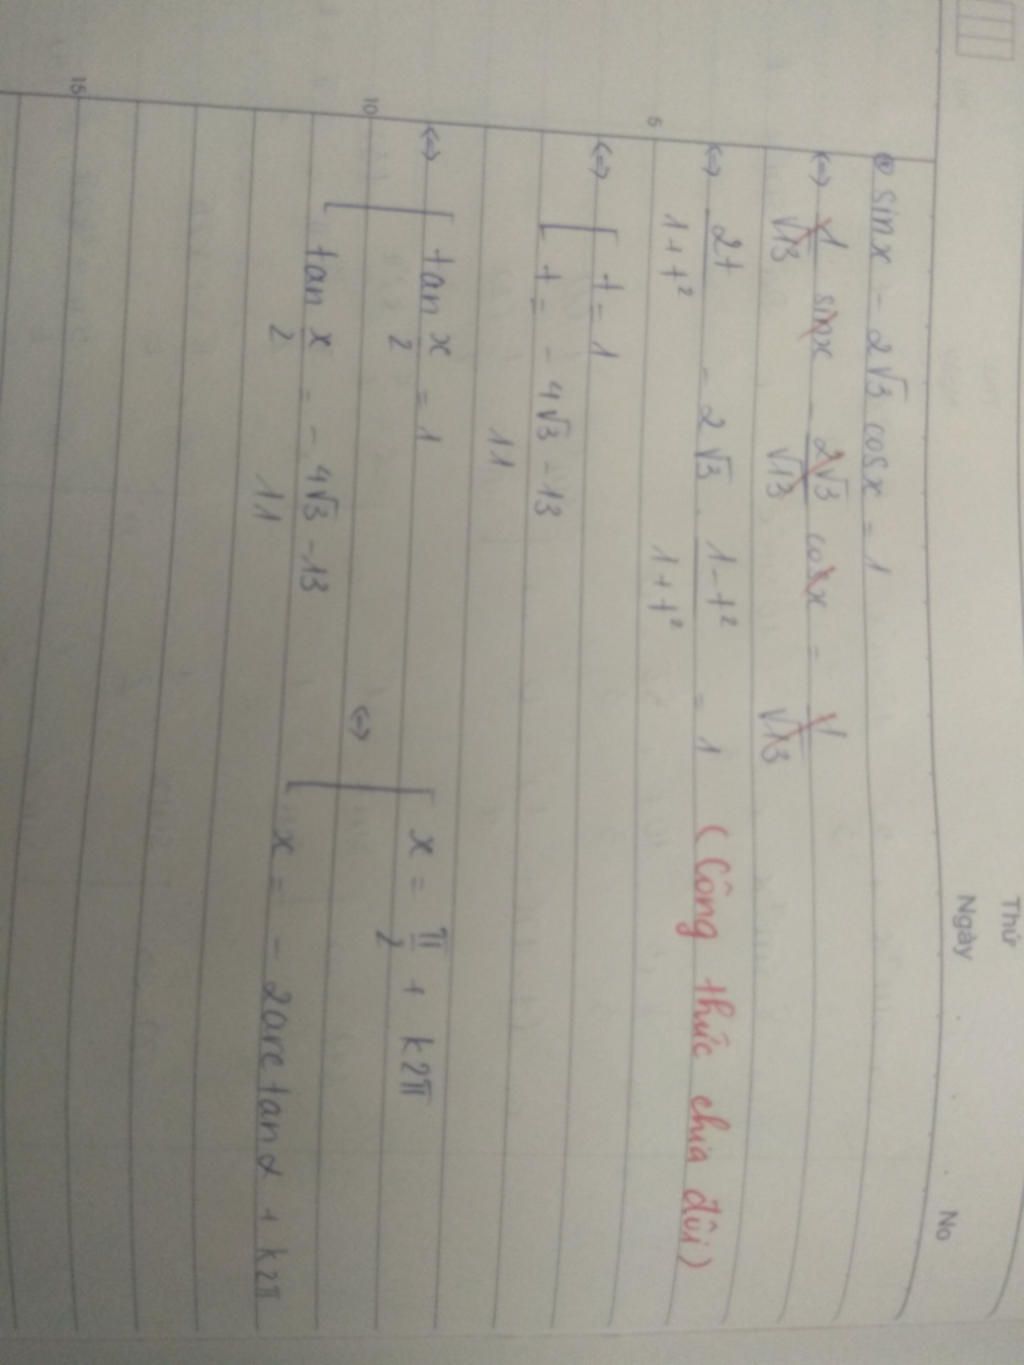 Thứ
Ngày
No
⊛ sinx - 2√3 cosx = 1
⇔ 1/√13 sinx - 2√3/√13 cosx = 1/√13
⇔ 2t/1+t² - 2√3 . 1-t²/1+t² = 1 (Công thức chia đôi)
5
⇔ [ t = 1
[ t = - 4√3 - 13/11
⇔ [ tan x/2 = 1
10
[ tan x/2 = - 4√3 - 13/11
⇔ [ x = π/2 + k2π
[ x = - 2arctanα + k2π
15